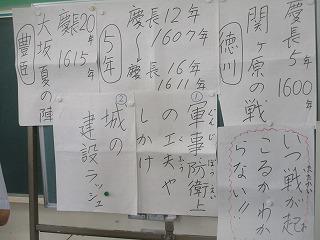 慶長5年
1600年
関ヶ原の戦
徳川
慶長12年
1607年
慶長16年
1611年
5年
慶長20年
1615年
大坂夏の陣
豊臣
いつ戦が起
こるかわか
らない!!
①
軍事・防衛上
の工夫や
しかけ
②
城の
建設ラッシュ